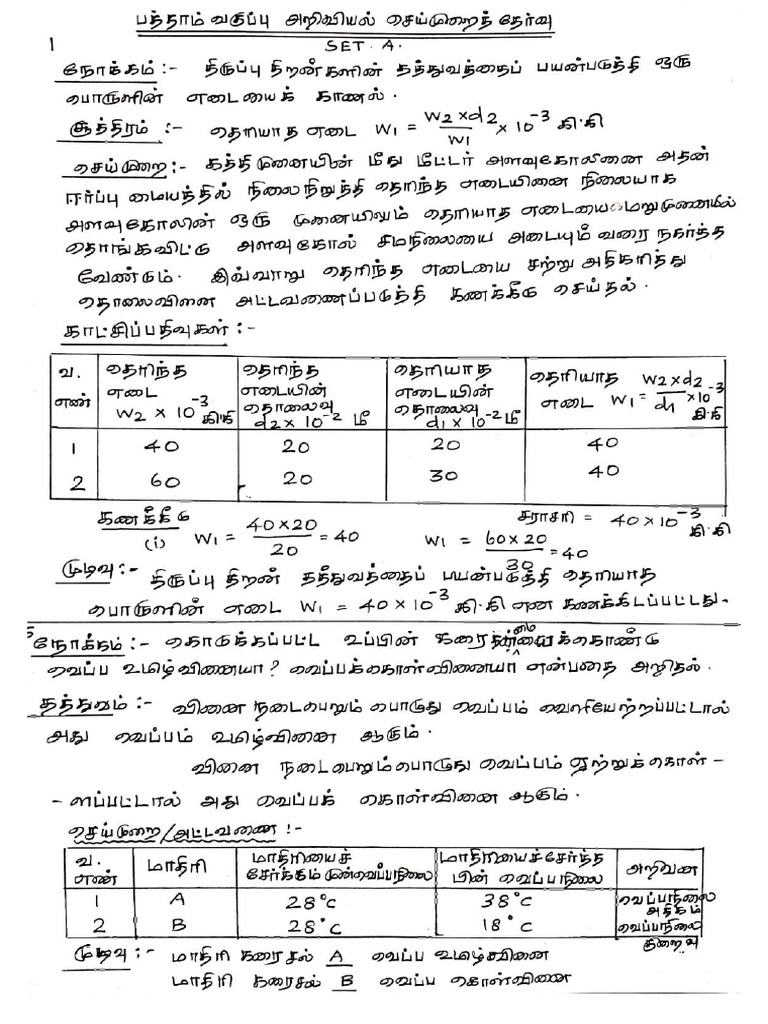 பத்தாம் வகுப்பு அறிவியல் செய்முறைத் தேர்வு
1 SET. A.
நோக்கம் :- திருப்பு திறன்களின் தத்துவத்தைப் பயன்படுத்தி ஒரு
பொருளின் எடையைக் காணல்.
சூத்திரம் :- தெரியாத எடை W1 = W2 x d2 / W1 x 10^-3 கி.கி
செய்முறை :- கத்தி முனையின் மீது மீட்டர் அளவுகோலினை அதன்
ஈர்ப்பு மையத்தில் நிலைநிறுத்தி தெரிந்த எடையினை நிலையாக
அளவுகோலின் ஒரு முனையிலும் தெரியாத எடையை மறுமுனையில்
தொங்கவிட்டு அளவுகோல் சமநிலையை அடையும் வரை நகர்த்த
வேண்டும். இவ்வாறு தெரிந்த எடையை சற்று அதிகரித்து
தொலைவினை அட்டவணைப்படுத்தி கணக்கீடு செய்தல்.
காட்சிப்பதிவுகள் :-
வ. எண் தெரிந்த எடை W2 x 10^-3 கி.கி தெரிந்த எடையின் தொலைவு d2 x 10^-2 மீ தெரியாத எடையின் தொலைவு d1 x 10^-2 மீ தெரியாத எடை W1 = W2 x d2 / d1 x 10^-3 கி.கி
1 40 20 20 40
2 60 20 30 40
கணக்கீடு சராசரி = 40 x 10^-3 கி.கி
(i) W1 = 40 x 20 / 20 = 40 W1 = 60 x 20 / 30 = 40
முடிவு :- திருப்பு திறன் தத்துவத்தைப் பயன்படுத்தி தெரியாத
பொருளின் எடை W1 = 40 x 10^-3 கி.கி என கணக்கிடப்பட்டது.
நோக்கம் :- கொடுக்கப்பட்ட உப்பின் கரைதிறமையைக்கொண்டு
வெப்ப உமிழ்வினையா? வெப்பக்கொள்வினையா என்பதை அறிதல்.
தத்துவம் :- வினை நடைபெறும் பொழுது வெப்பம் வெளியேற்றப்பட்டால்
அது வெப்பம் உமிழ்வினை ஆகும்.
வினை நடைபெறும்பொழுது வெப்பம் ஏற்றுக்கொள் -
- ளப்பட்டால் அது வெப்பக் கொள்வினை ஆகும்.
செய்முறை/அட்டவணை :-
வ. எண் மாதிரி மாதிரியைச் சேர்க்கும் முன்வெப்பநிலை மாதிரியைச்சேர்த்த பின் வெப்பநிலை அறிவன
1 A 28°c 38°c வெப்பநிலை அதிகம்
2 B 28°c 18°c வெப்பநிலை குறைவு
முடிவு :- மாதிரி கரைசல் A வெப்ப உமிழ்வினை
மாதிரி கரைசல் B வெப்ப கொள்வினை